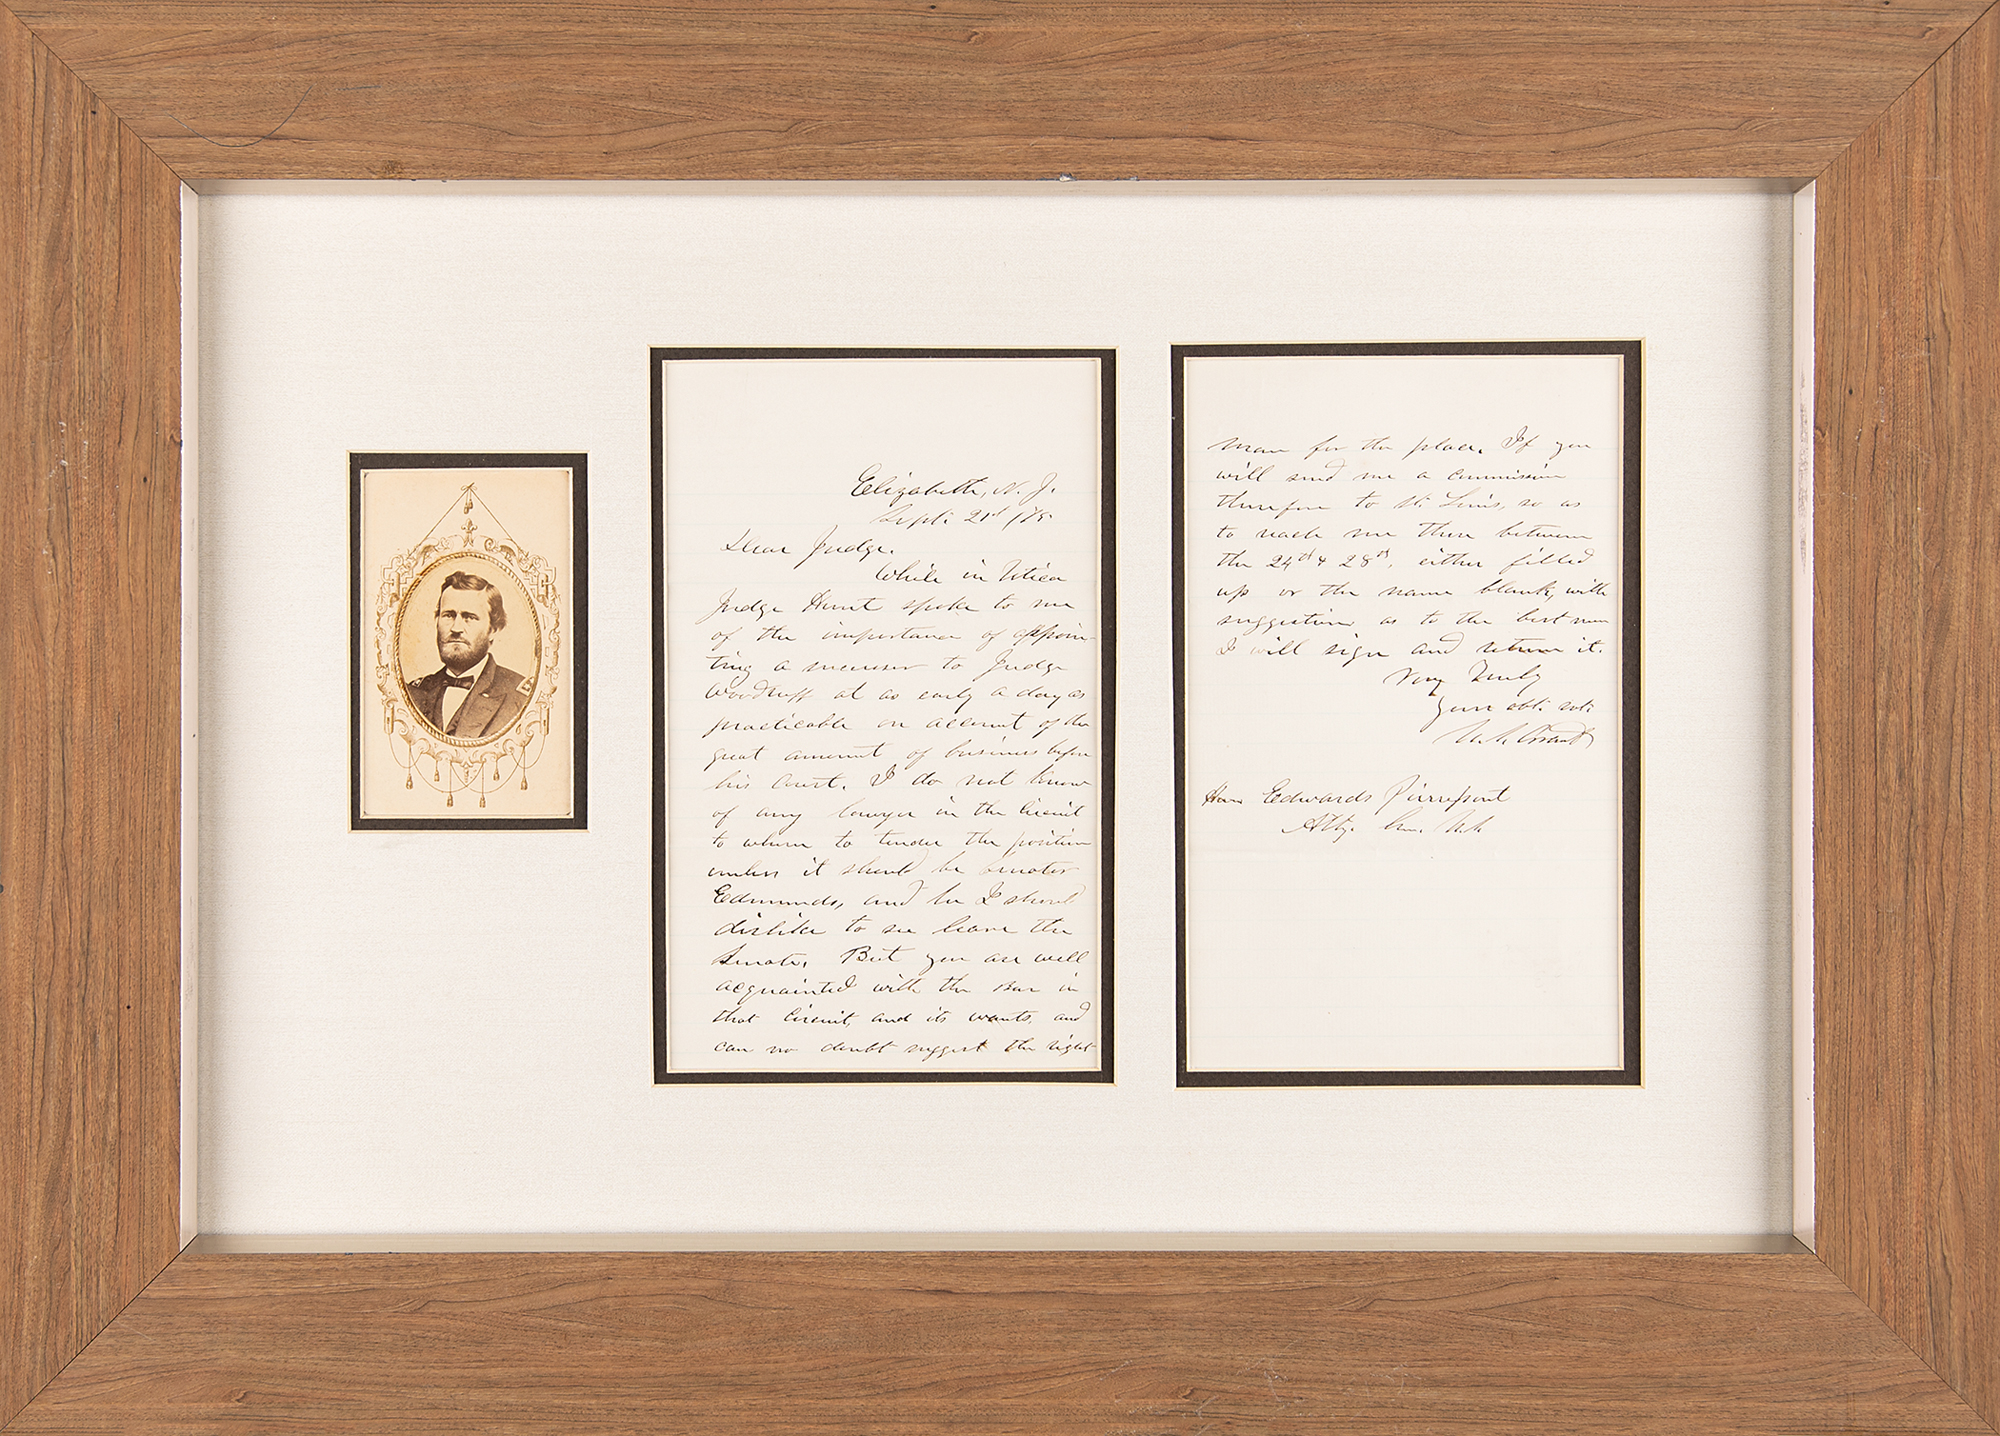 Elizabeth, N. J.
Sept. 21st /75
Dear Judge.
While in Utica
Judge Hunt spoke to me
of the importance of appoin-
ting a successor to Judge
Woodruff at as early a day as
practicable on account of the
great amount of business before
his Court. I do not know
of any lawyer in the Circuit
to whom to tender the position
unless it should be Senator
Edmunds, and he I should
dislike to see leave the
Senate. But you are well
acquainted with the Bar in
that Circuit, and its wants, and
can no doubt suggest the right
man for the place. If you
will send me a commission
therefore to St. Louis, so as
to reach me there between
the 24th & 28th, either filled
up or the name blank, with
suggestions as to the best man
I will sign and return it.
Very Truly
Your obt. svt.
U. S. Grant
Hon Edwards Pierrepont
Atty. Gen. U.S.